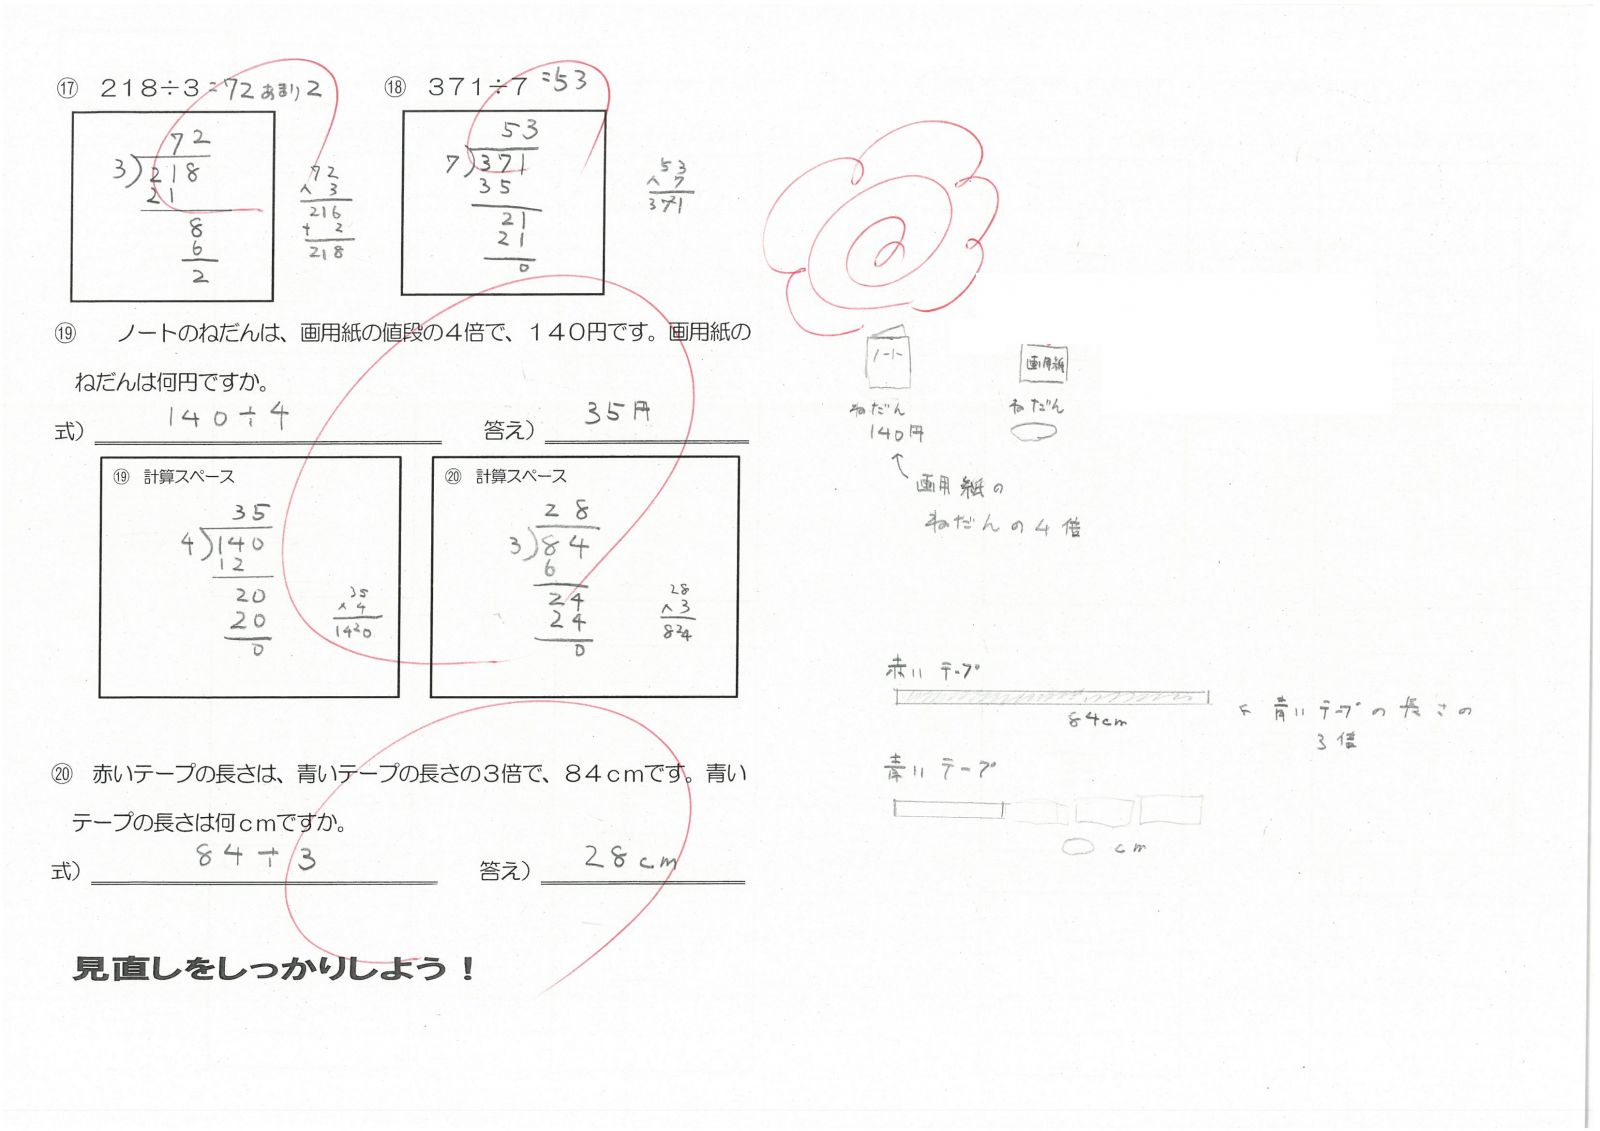 ⑰ 218÷3=72あまり2
72
3)218
21
8
6
2
72
× 3
216
+ 2
218
⑱ 371÷7=53
53
7)371
35
21
21
0
53
× 7
3721
⑲ ノートのねだんは、画用紙の値段の4倍で、140円です。画用紙の
ねだんは何円ですか。
式) 140÷4 答え) 35円
⑲ 計算スペース
35
4)140
12
20
20
0
35
× 4
1420
⑳ 計算スペース
28
3)84
6
24
24
0
28
× 3
824
⑳ 赤いテープの長さは、青いテープの長さの3倍で、84cmです。青い
テープの長さは何cmですか。
式) 84÷3 答え) 28cm
見直しをしっかりしよう！
ノート
ねだん
140円
画用紙
ねだん
画用紙の
ねだんの4倍
赤いテープ
84cm
青いテープの長さの
3倍
青いテープ
cm